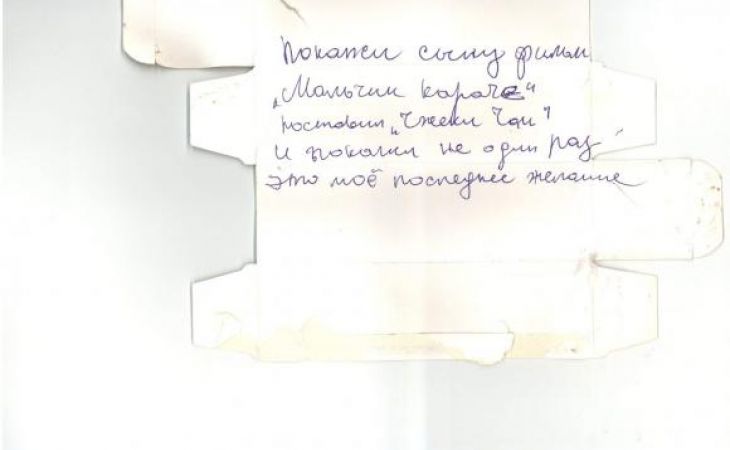 Покажи сыну фильм
„Мальчик каратэ"
постовил „Чжеки Чан"
и покажи не один раз
это моё последнее желание